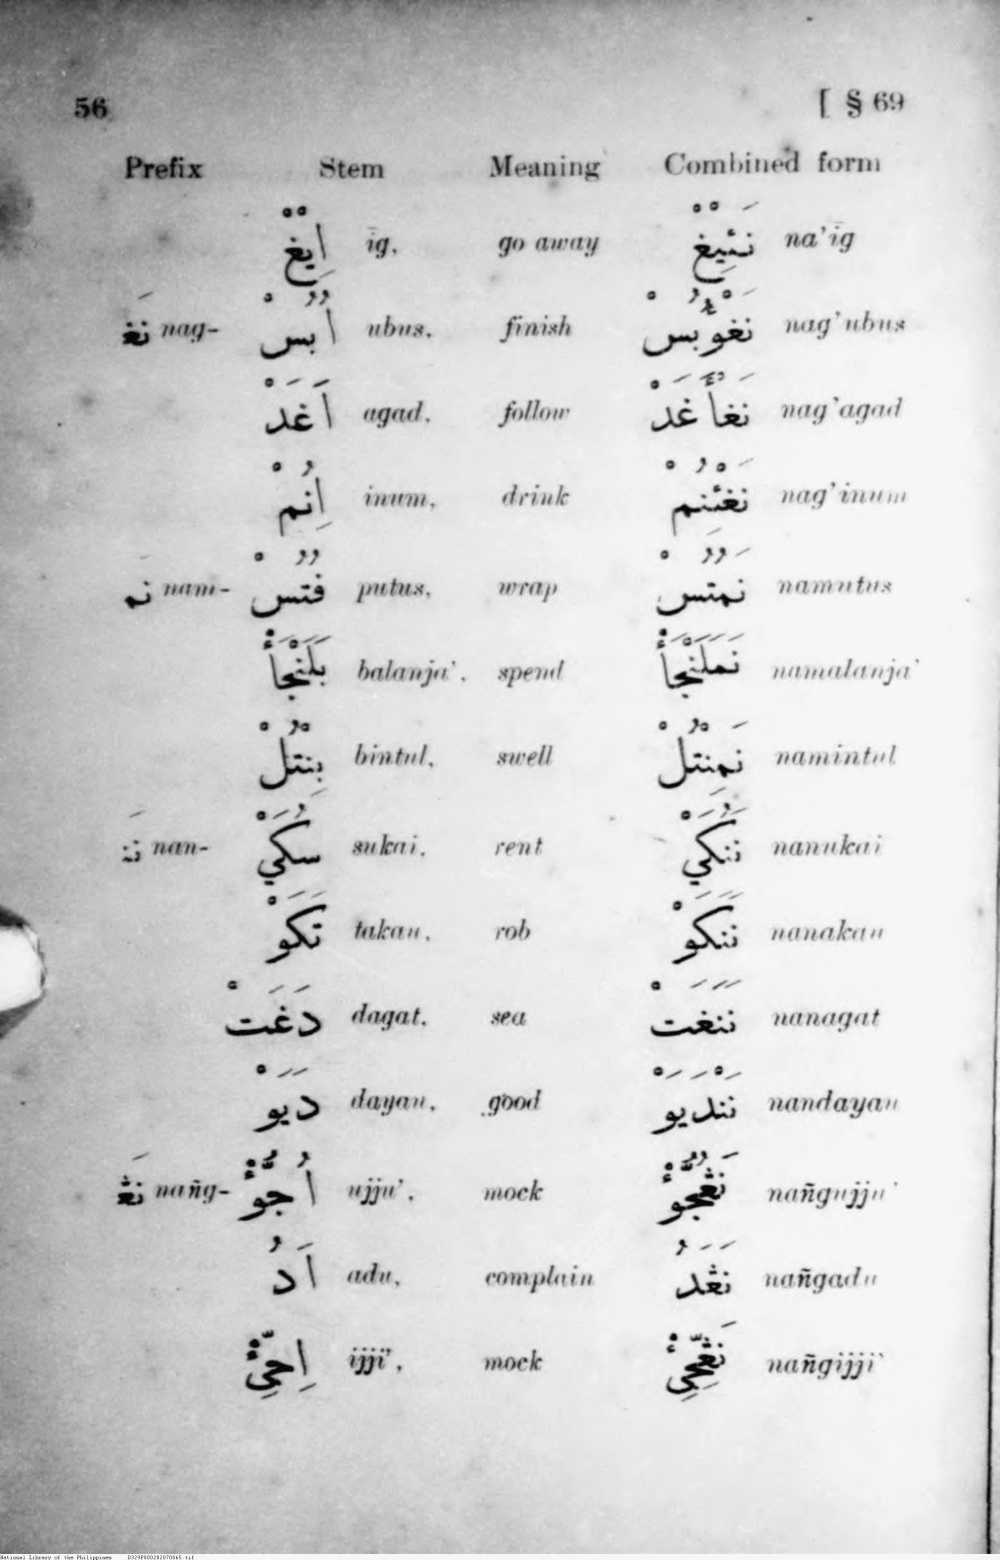 56 [ § 69
Prefix Stem Meaning Combined form
اِيْغْ īg, go away نَئِيْغْ na'īg
نَغ nag- اُبُسْ ubus, finish نَغْوُبُسْ nag'ubus
اَغَدْ agad, follow نَغْأَغَدْ nag'agad
اِنُمْ inum, drink نَغْئِنُمْ nag'inum
نَم nam- فُتُسْ putus, wrap نَمُتُسْ namutus
بَلَنْجَأْ balanja', spend نَمَلَنْجَأْ namalanja'
بِنْتُلْ bintul, swell نَمِنْتُلْ namintul
نَن nan- سُكَيْ sukai, rent نَنُكَيْ nanukai
تَكَوْ takau, rob نَنَكَوْ nanakau
دَغَتْ dagat, sea نَنَغَتْ nanagat
دَيَوْ dayau, good نَنْدَيَوْ nandayau
نَڠ nañg- اُجُّؤْ ujju', mock نَڠُجُّؤْ nañgujju'
اَدُ adu, complain نَڠَدُ nañgadu
اِجِّئْ ijji', mock نَڠِجِّئْ nañgijji'
National Library of the Philippines